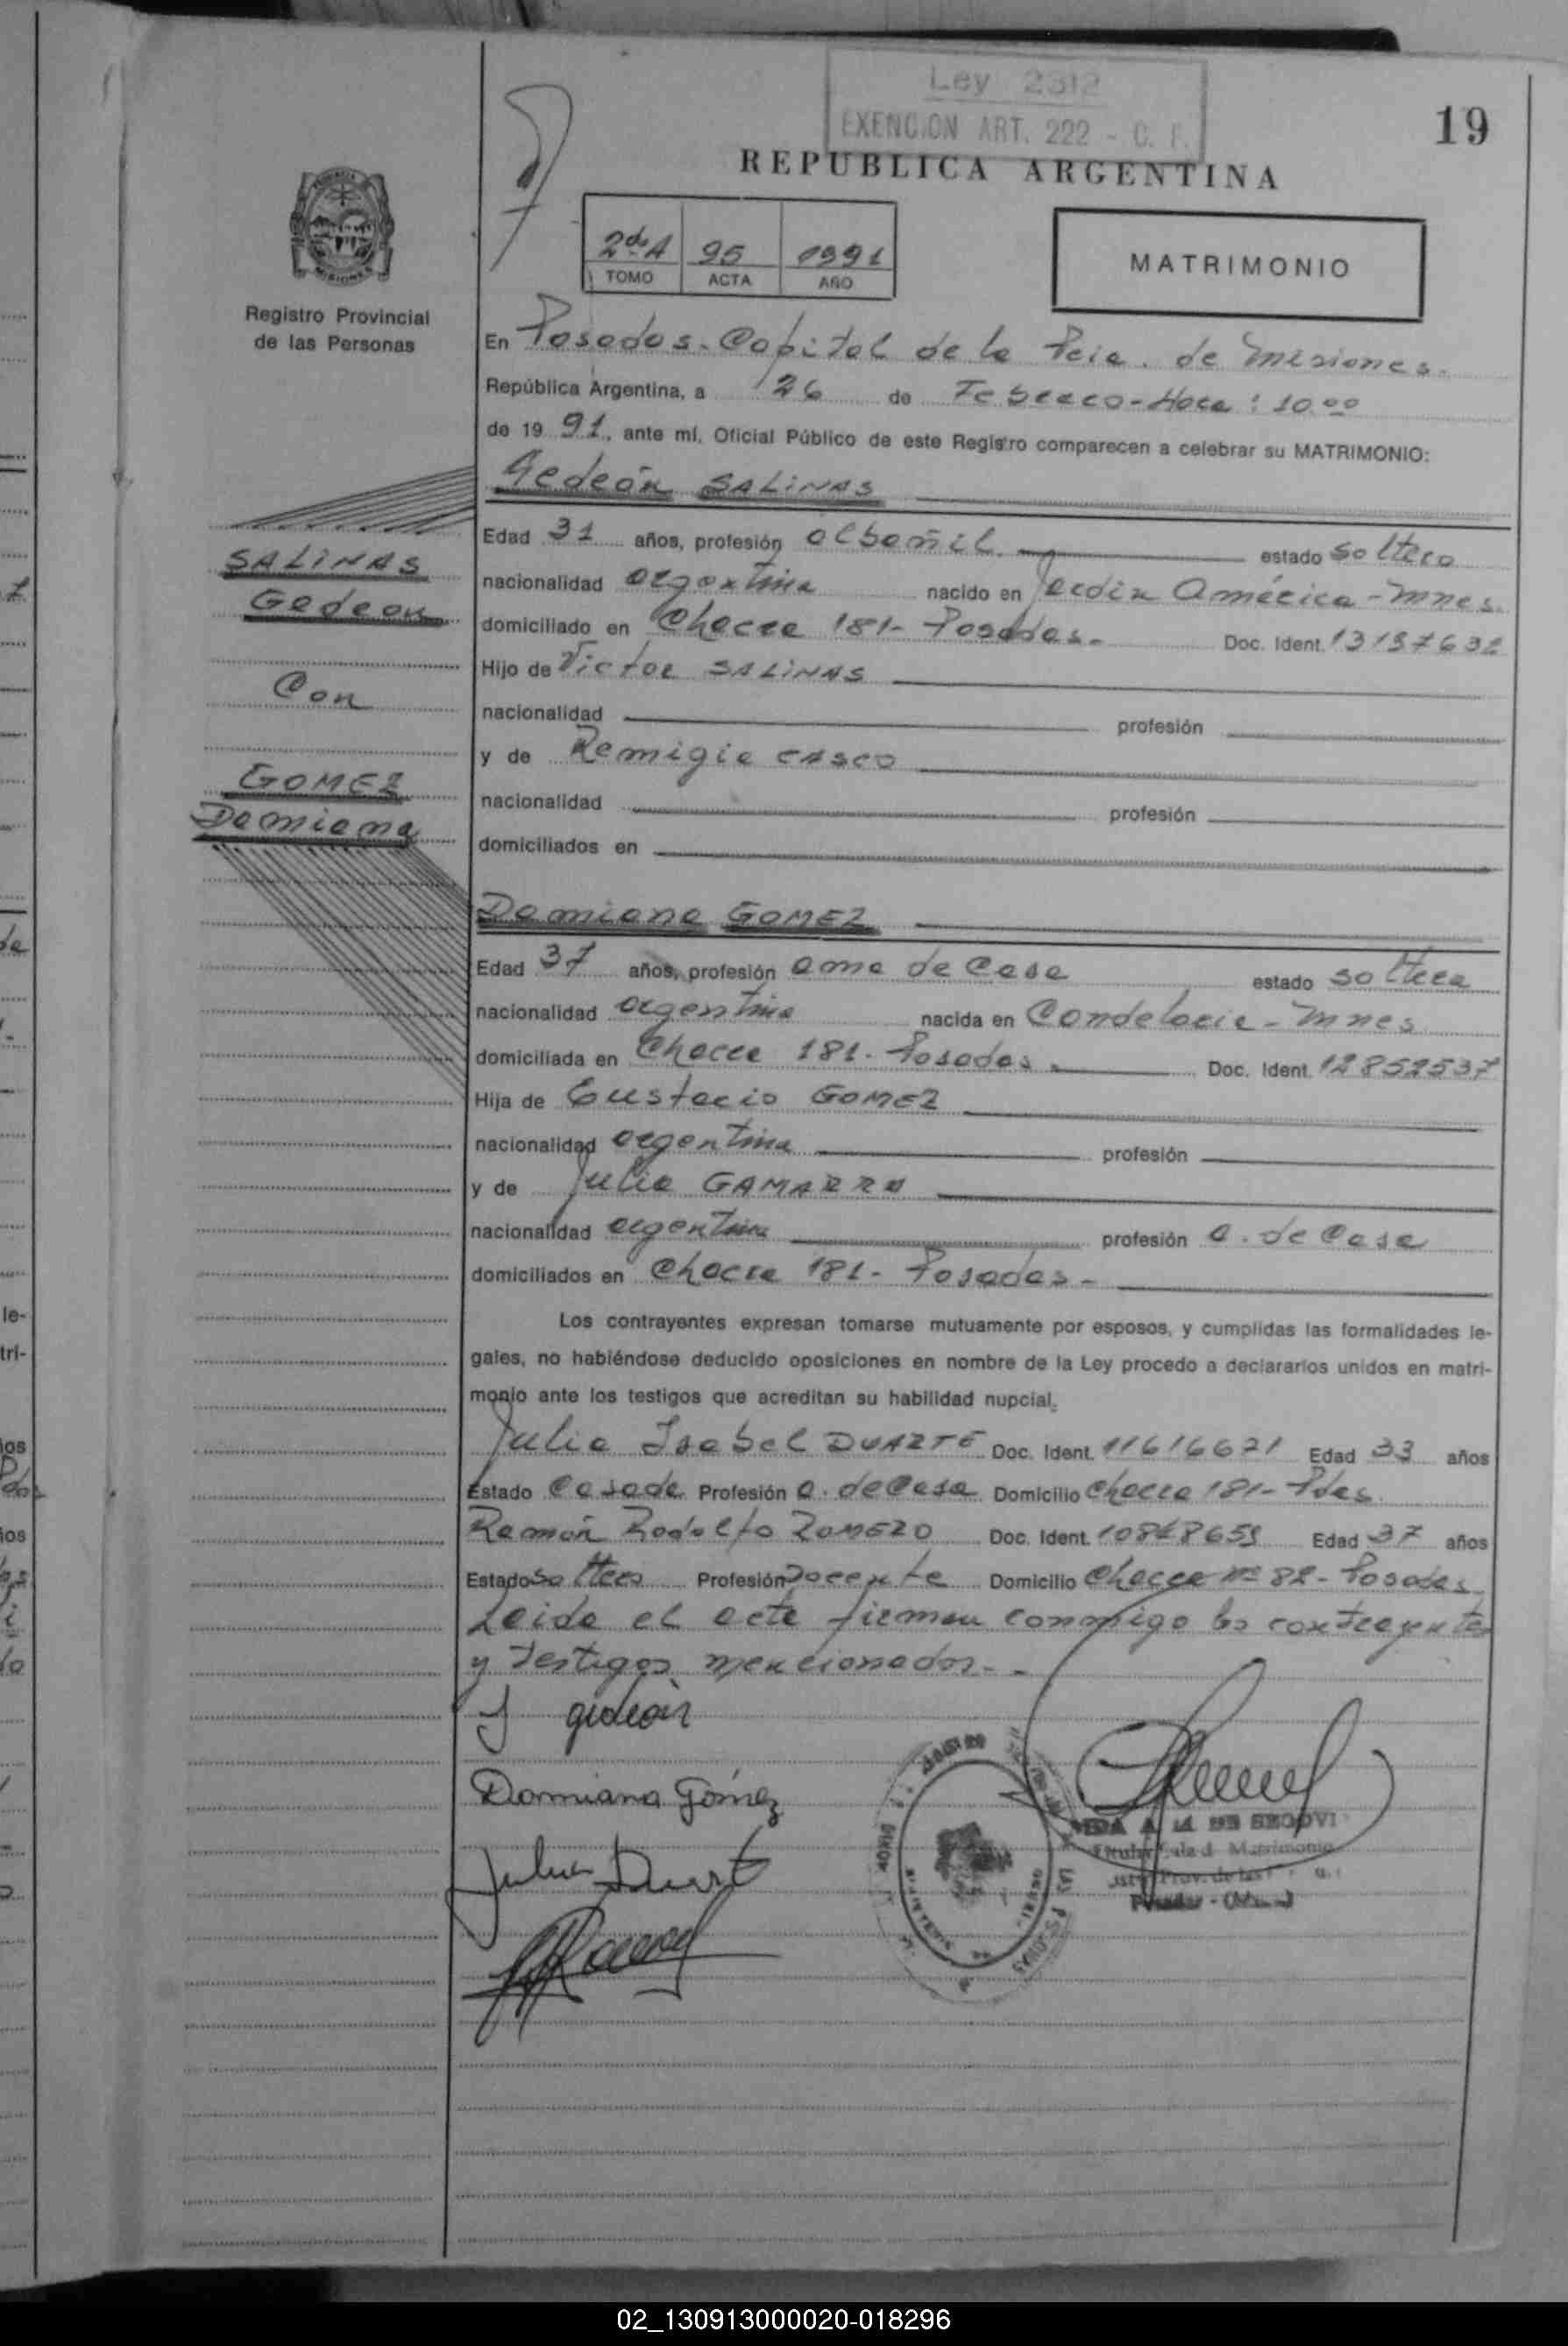 Ley 2312
EXENCION ART. 222 - C. F.
19
REPUBLICA ARGENTINA
2do A 95 1991
TOMO ACTA AÑO
MATRIMONIO
Registro Provincial
de las Personas
En Posadas - Capital de la Pcia. de Misiones.
República Argentina, a 26 de Febrero - Hora: 10.00
de 19 91, ante mí, Oficial Público de este Registro comparecen a celebrar su MATRIMONIO:
Gedeón SALINAS
Edad 31 años, profesión albañil. estado soltero
nacionalidad argentina nacido en Jardín América - Mnes.
domiciliado en Chacra 181 - Posadas - Doc. Ident. 13197632
Hijo de Victor SALINAS
nacionalidad profesión
y de Remigia CASCO
nacionalidad profesión
domiciliados en
SALINAS
Gedeon
Con
GOMEZ
Damiana
Damiana GOMEZ
Edad 37 años, profesión ama de casa estado soltera
nacionalidad argentina nacida en Candelaria - Mnes
domiciliada en Chacra 181 - Posadas. Doc. Ident. 12852537
Hija de Eustacio GOMEZ
nacionalidad argentina profesión
y de Julia GAMARRA
nacionalidad argentina profesión a. de casa
domiciliados en Chacra 181 - Posadas -
Los contrayentes expresan tomarse mutuamente por esposos, y cumplidas las formalidades le-
gales, no habiéndose deducido oposiciones en nombre de la Ley procedo a declararlos unidos en matri-
monio ante los testigos que acreditan su habilidad nupcial.
Julia Isabel DUARTE Doc. Ident. 11616621 Edad 33 años
Estado Casada Profesión a. de casa Domicilio Chacra 181 - Pdas.
Ramón Rodolfo ROMERO Doc. Ident. Edad 37 años
Estado soltero Profesión Docente Domicilio Chacra Nº 82 - Posadas
Leida el acta firman conmigo los contrayentes
y testigos mencionados - -
S gedeón
Damiana Gómez
Julia Duarte
DE SEGOVI
Titular Sala d Matrimonio
Prov. de las
Posadas -
02_130913000020-018296